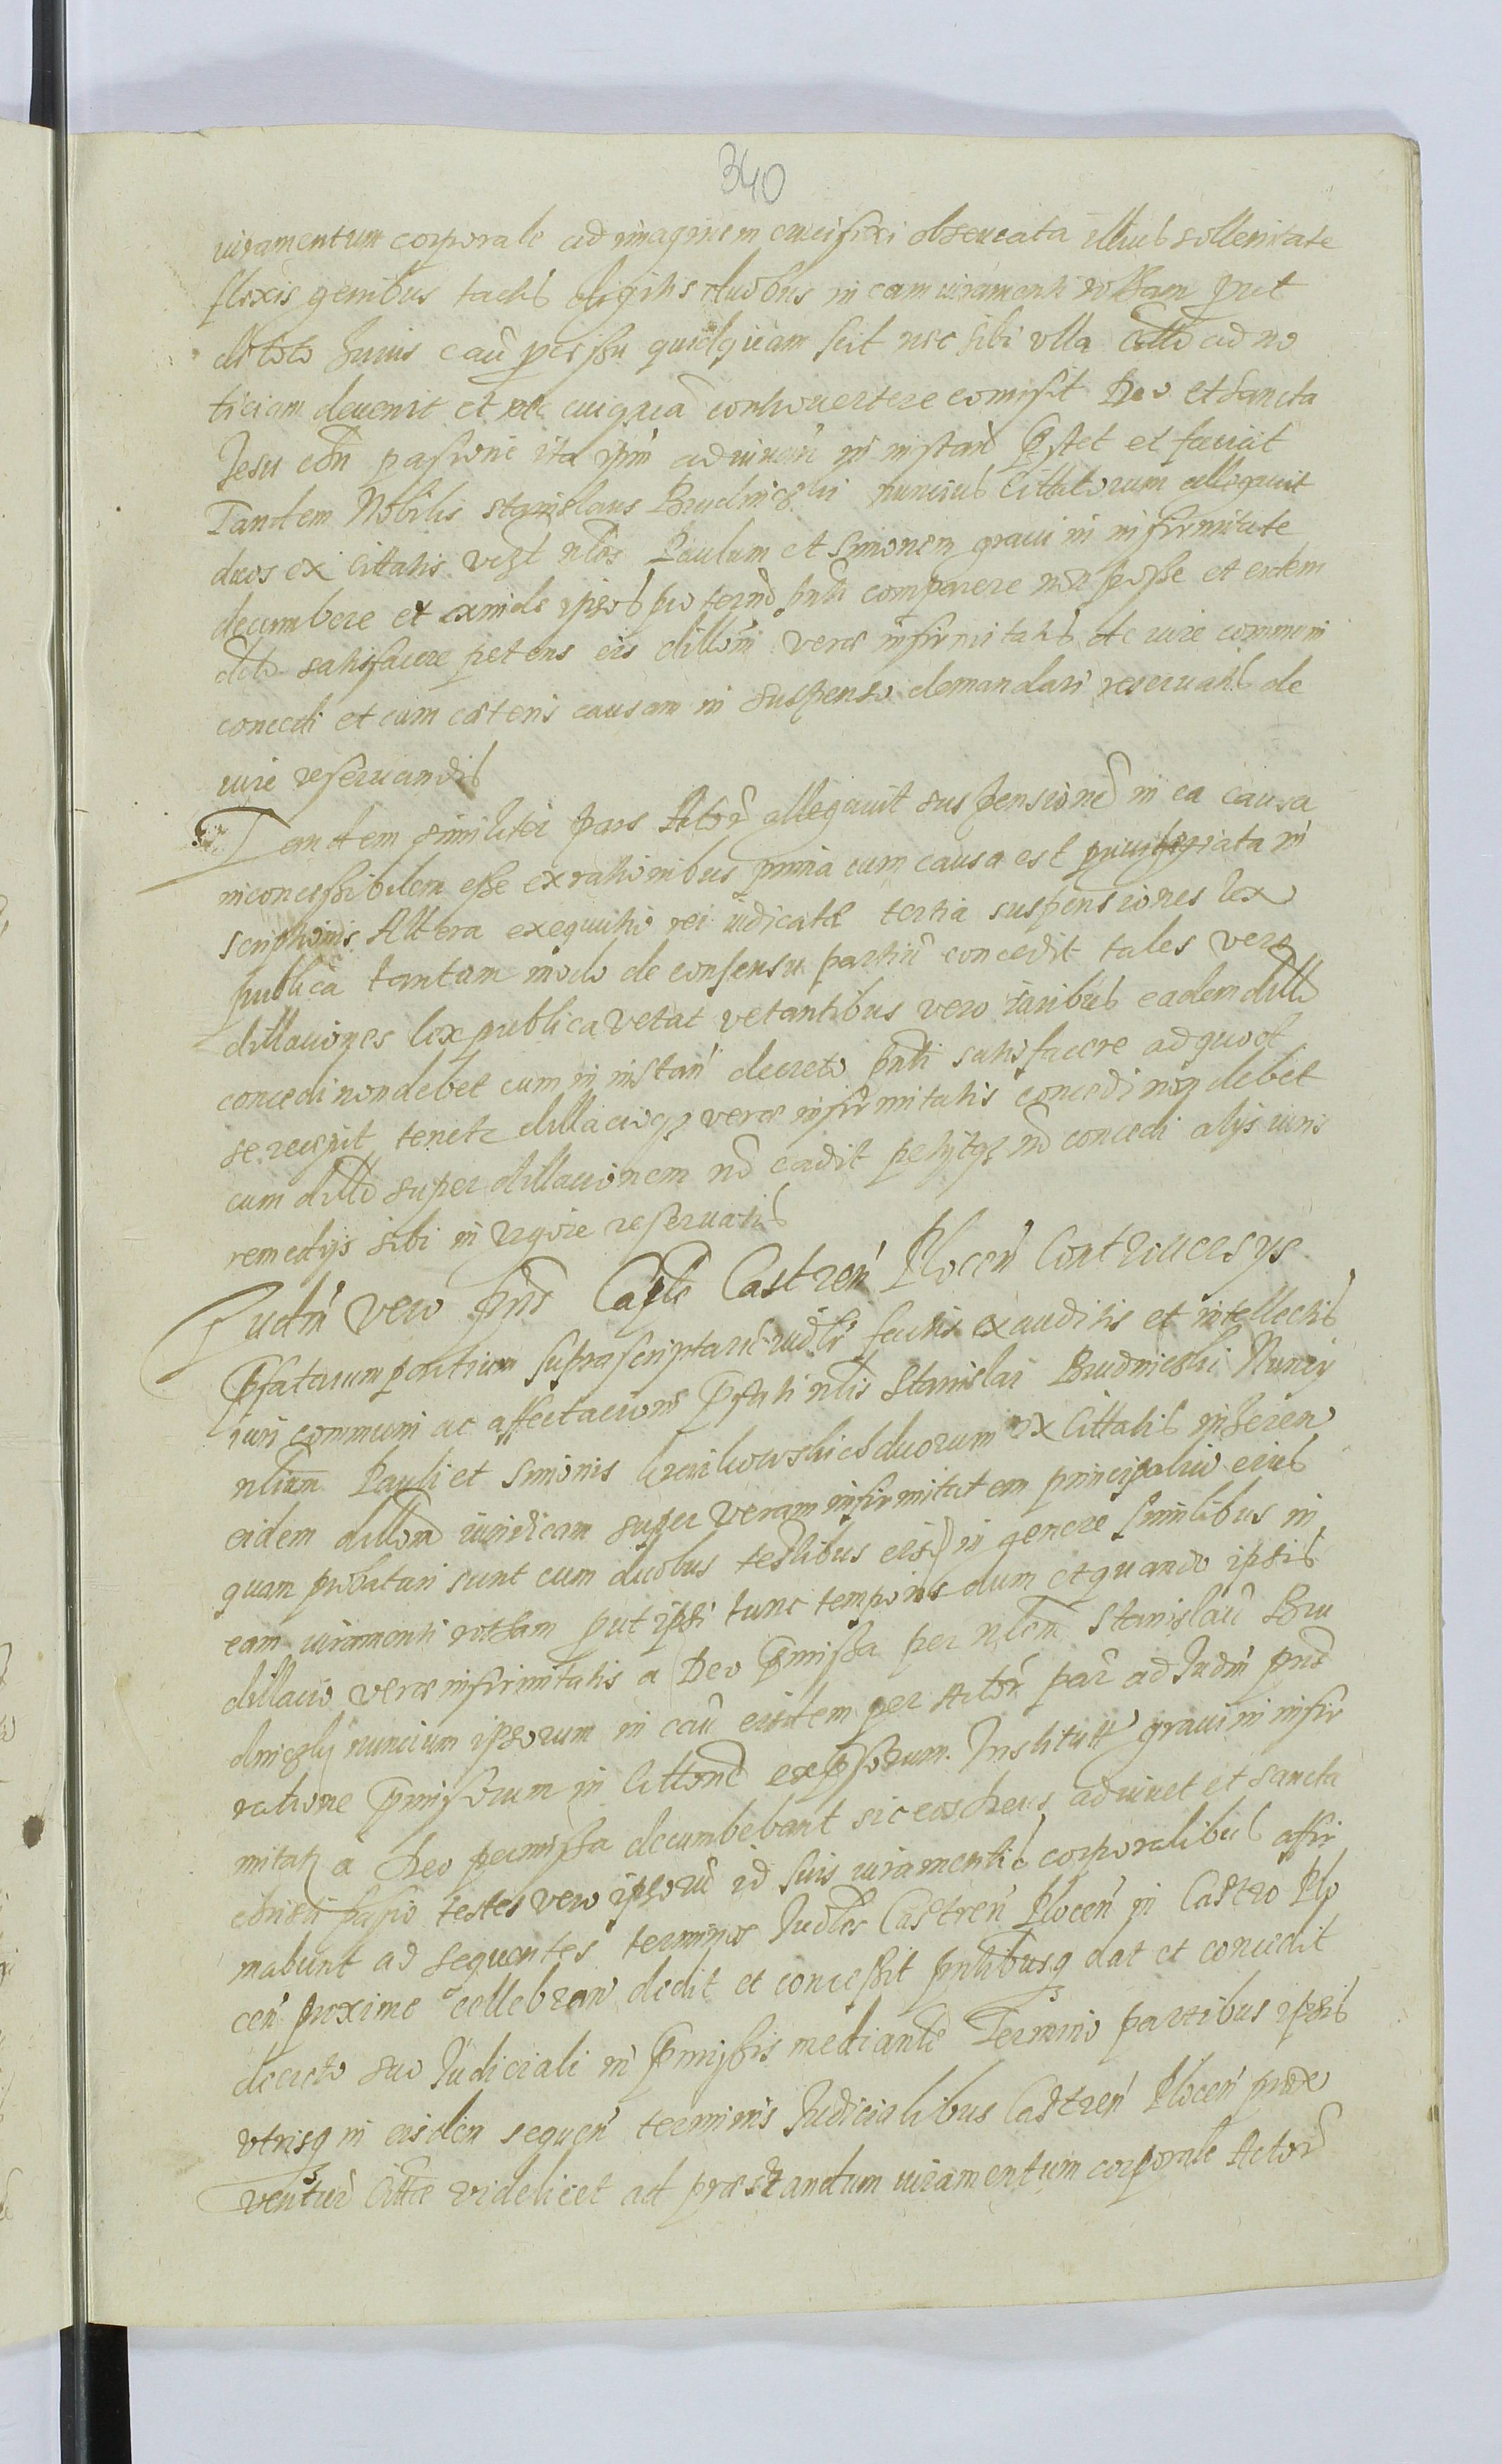 340
iuramentum corporale ad imaginem crucifixi obseruata illius sollenitate
flexis genibus tactis digitis duobus in eam iuramenti rotham prut
de toto huius cau quidquam scit nec sibi vlla ad no
ticiam deuenit et cuiqua controuertere comisit Deo et Sancta
Jesu passione ita ipm adiuuen in instan pstet et faciat
Tandem Nobilis Stanislaus Brudnicski nuncius Cittatorum allegauit
duos ex Cittatis vczt nlos Paulum et Simonem graui in infirmitate
decumbere et exinde ipsos pro termo pnti comparere non posse et eidem
dcto satisfacere petens eis dillom veras infirmitatis de iure communi
concedi et cum caeteris causam in suspenso demandari reseruatis de
iure reseruandis
Tandem similiter pars Actor allegauit suspensione in ea causa
inconcessibilem esse ex rationibus prima cum causa est priuilegiata in
scriptionis Altera exequutio rei iudicatae tertia suspensiones lex
publica tantum modo de consensu partiu concedit tales vero
dillationes lex publica vetat vetantibus vero iuribus eadem dillo
concedi non debet cum in instan decreto pnti satisfacere ad quod
se recepit tenetr dillacioq verae infirmitatis concedi non debet
cum dillo super dillacionem no cadit petijtq no concedi alijs iuris
remedijs sibi in reseruatis
Judm vero pns Caple Castren Plocen Controuersys
Pfatarum partium suprascriptaru factis exauditis et intellectis
iuri communi ac affectacione Pfati nlis Stanislai Brudnicski Nuncy
nlium Pauli et Simonis duorum ex Cittatis inheren
eidem dillom iuridicam super veram infirmitatem principaliu eius
quam probaturi sunt cum duobus testibus eis in genere similibus in
eam iuramenti rotham prut ipsi tunc temporis dum et quando ipsis
dillacio verae infirmitatis a Deo Pmissa per nlem Stanislau Bru
dniczky nuncium ipsorum in cau eisdem per Actor par ad Judm pns
ratione Pmissorum in Cittone expssorum Institutt graui in infir
mitate a Deo permissa decumbebant sic eos Deus adiuuet et sancta
passio testes vero ipsoru id suis iuramentis corporalibus affir
mabunt ad sequentes terminos Judles Castren Plocen in Castro Plo
cen proxime cellebran dedit et concessit pntibusq dat et concedit
decreto suo Judiciali in Pmissis mediante Termino partibus ipsis
vtrisq in eisdem sequen terminis Judicialibus Castren Plocen
ventur videlicet ad praestandum iuramentum corporale Actor